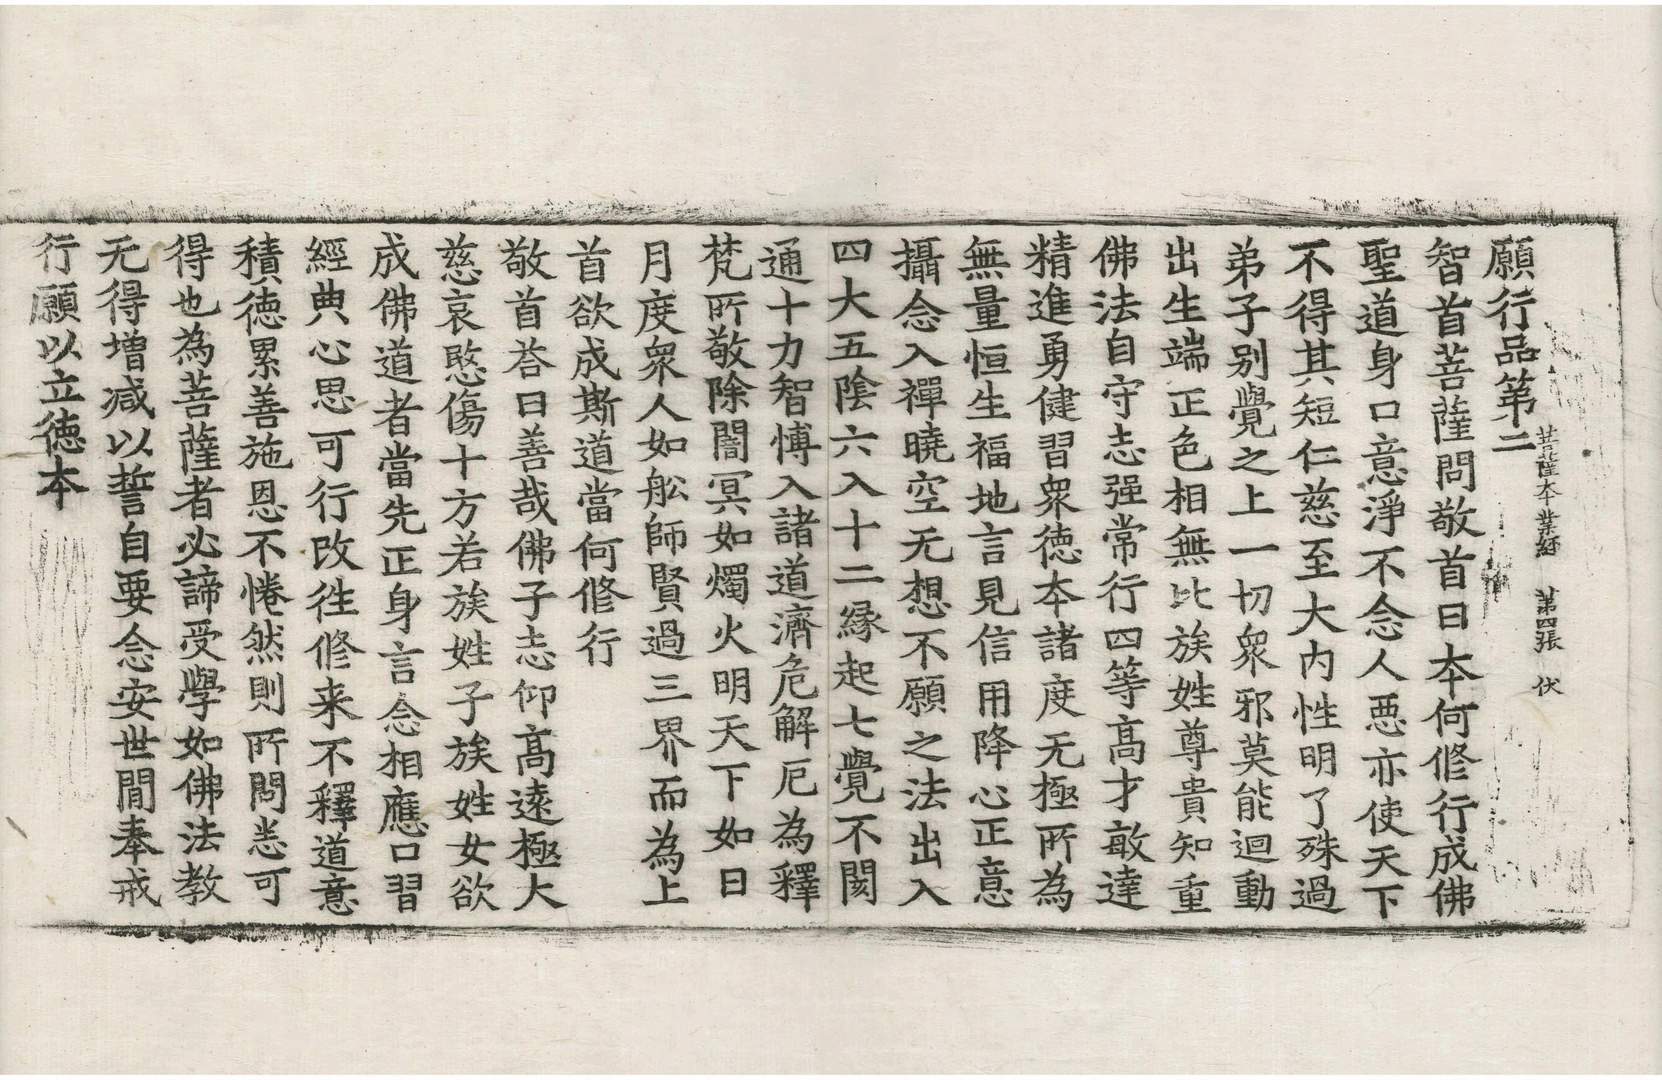 菩薩本業經　第四張　伏
願行品第二
智首菩薩問敬首曰本何修行成佛
聖道身口意淨不念人惡亦使天下
不得其短仁慈至大内性明了殊過
弟子别覺之上一切衆邪莫能迴動
出生端正色相無比族姓尊貴知重
佛法自守志强常行四等高才敢達
精進勇健習衆徳本諸度无極所為
無量恒生福地言見信用降心正意
攝念入禪曉空无想不願之法出入
四大五陰六入十二緣起七覺不闕
通十力智愽入諸道濟危解厄為釋
梵所敬除闇冥如燭火明天下如日
月度衆人如舩師賢過三界而為上
首欲成斯道當何修行
敬首荅曰善哉佛子志仰高遠極大
慈哀愍傷十方若族姓子族姓女欲
成佛道者當先正身言念相應口習
經典心思可行改徃修来不釋道意
積徳累善施恩不惓然則所問悉可
得也為菩薩者必諦受學如佛法教
无得增减以誓自要念安世間奉戒
行願以立徳本